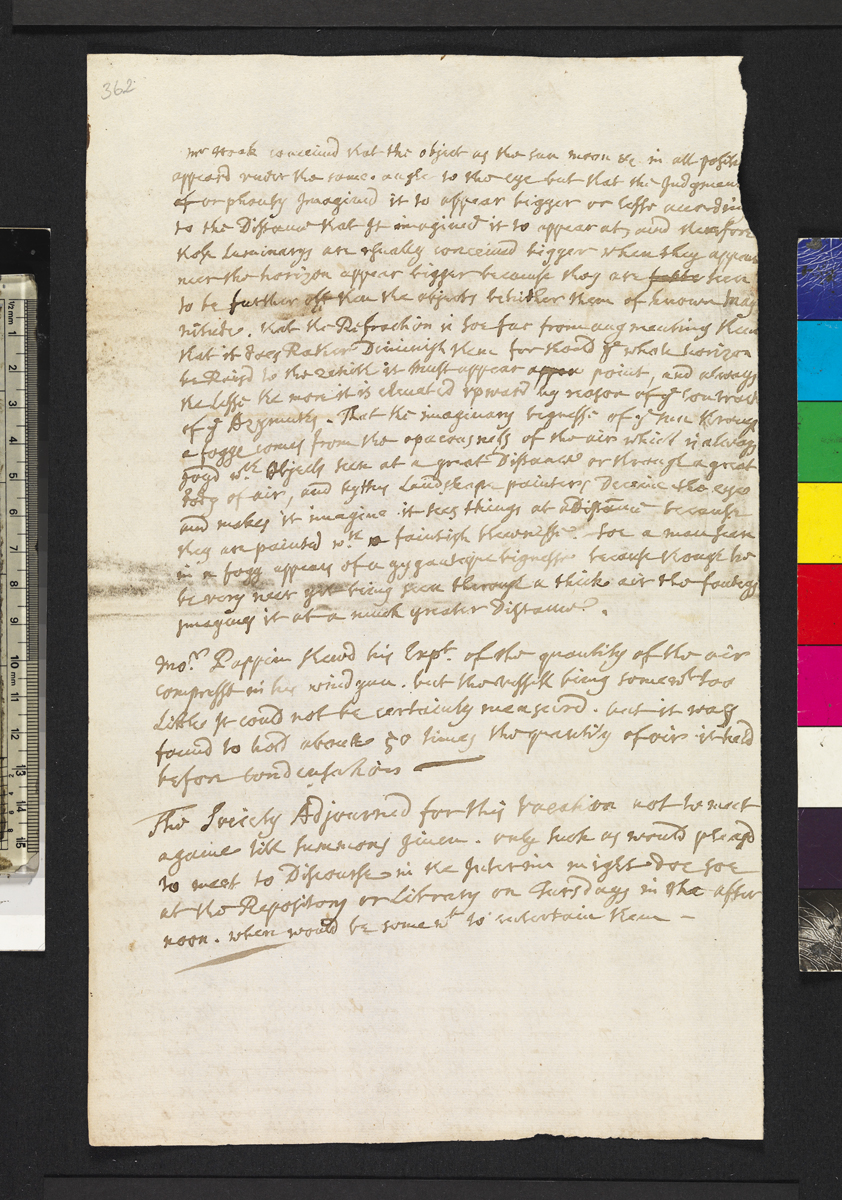 362
mr Hook conceiud that the object as the sun moon &c in all positi
appeard under the same angle to the eye but that the Judgmen
or phantsy Imagined it to appear bigger or lesse accordin
to the Distance that It imagined it to appear at, and therfore
those Luminarys are usually conceiued bigger when they appear
neer the horizon appear bigger because they are seen
to be further off then the objects behither them of known mag
nitude. that the Refraction is soe far from augmenting them
that it does Rather Diminish them for should ye whole horizon
be Raisd to the zenith it must appear a point, and always
the lesse the more it is eleuated upward by reason of ye
of ye Azymuths. That the imaginary bignesse of ye sun through
a fogge comes from the opacousness of the air which is always
Joynd wth objects seen at a great Distance or through a great
body of air, and by this Landskape painters Deceiue the eye
and makes it imagine it sees things at a Distance because
they are painted wth a faintish thewnesse. Soe a man seen
in a fogg appears of a gygantique bignesse because though he
be very neer yet being seen through a thick air the fantesy
imagines it at a much greater Distance.
Mor. Pappin shewd his Expt. of the quantity of the air
comprest in his windgun. but the vessell being somewt too
Little It could not be certainly measured. but it was
found to hold about 50 times the quantity of air it held
before condensation
The Society Adjourned for this vacation not to meet
againe till summons giuen. only such as would pleasd
to meet to Discourse in the Interim might doe soe
at the Repository or Library on Tursdays in the after
noon. where would be somewt to entertain them -